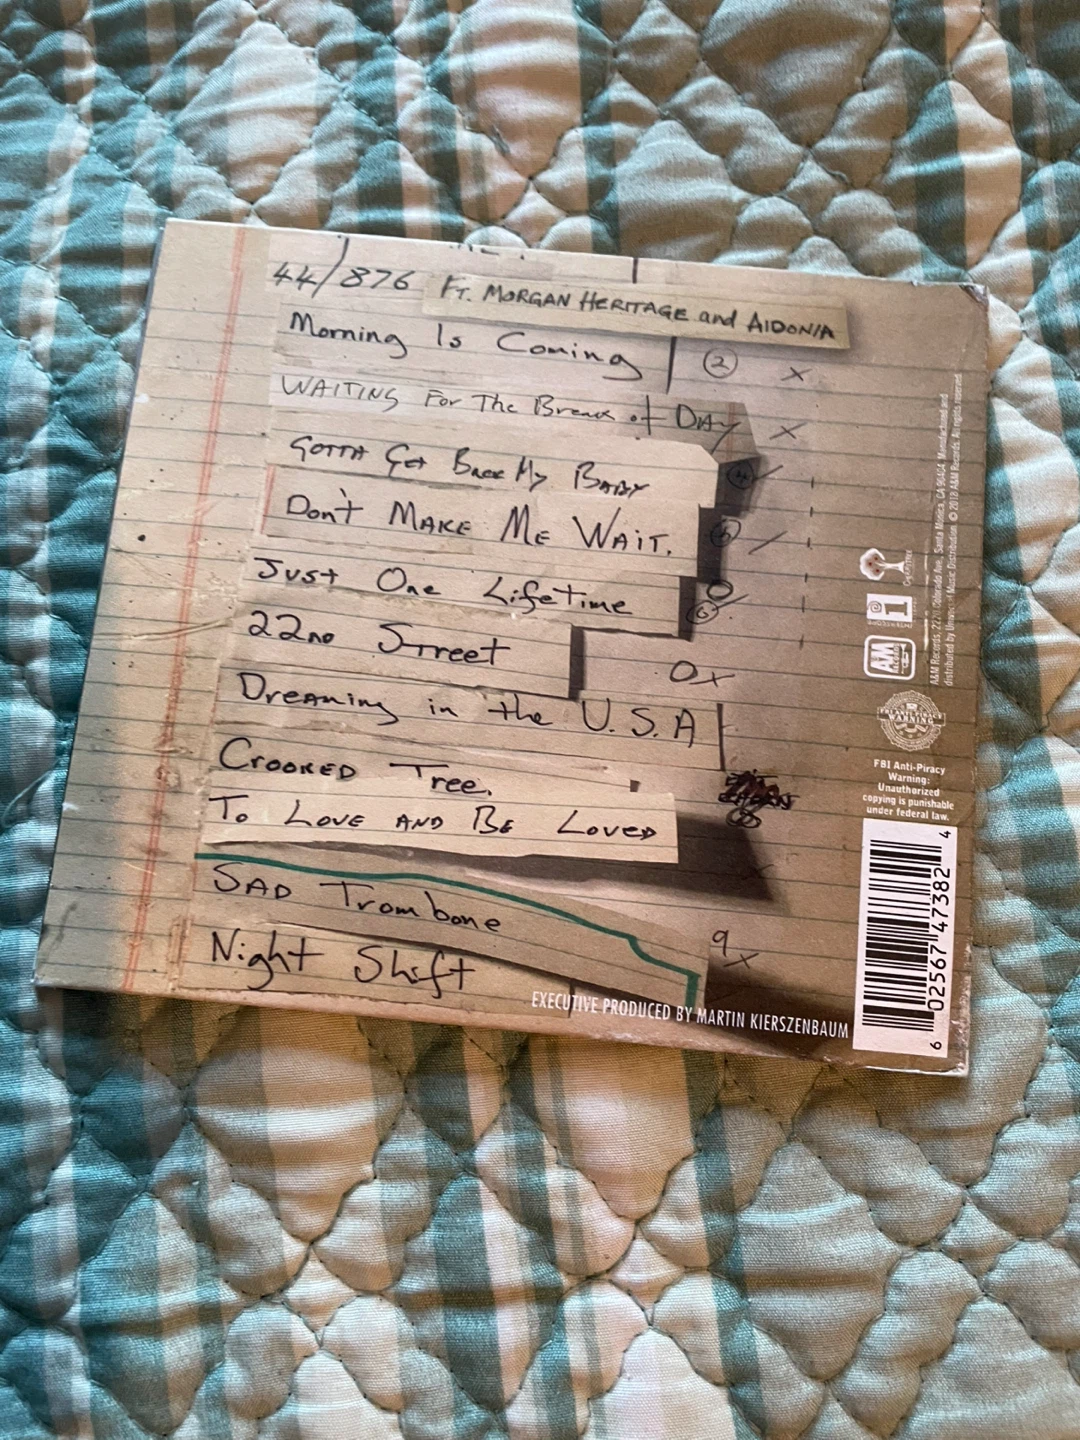 44/876 FT. MORGAN HERITAGE and AIDONIA
Morning Is Coming
2 x
WAITING For The Break of DAY x
GOTTA Get Back My BABY
4
Don't MAKE ME WAIT.
5
Just One Lifetime
6
22ND Street
0x
Dreaming in the U.S.A
CROOKED Tree.
8
To LOVE AND BE LOVED
SAD Trombone
9x
Night Shift
EXECUTIVE PRODUCED BY MARTIN KIERSZENBAUM
A&M Records, 2220 Colorado Ave., Santa Monica, CA 90404. Manufactured and
distributed by Universal Music Distribution. © 2018 A&M Records. All rights reserved.
Cherrytree
1
AM
RECORDS
FBI ANTI-PIRACY
WARNING
FBI Anti-Piracy
Warning:
Unauthorized
copying is punishable
under federal law.
6 02567 47382 4